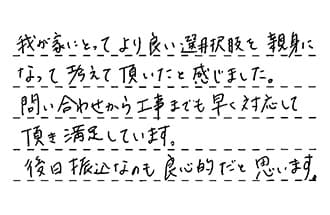 我が家にとってより良い選択肢を親身に
なって考えて頂いたと感じました。
問い合わせから工事までも早く対応して
頂き満足しています。
後日振込なのも良心的だと思います。